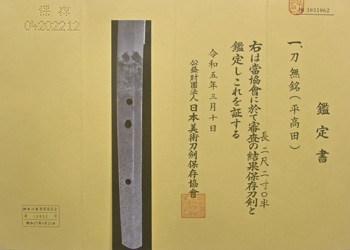 保存
04202212
No 3011062
鑑定書
一、刀 無銘(平高田)
長 二尺二寸〇半
右は當協會に於て審査の結果保存刀剣と
鑑定しこれを証する
令和五年三月十日
公益財團法人 日本美術刀剣保存協會